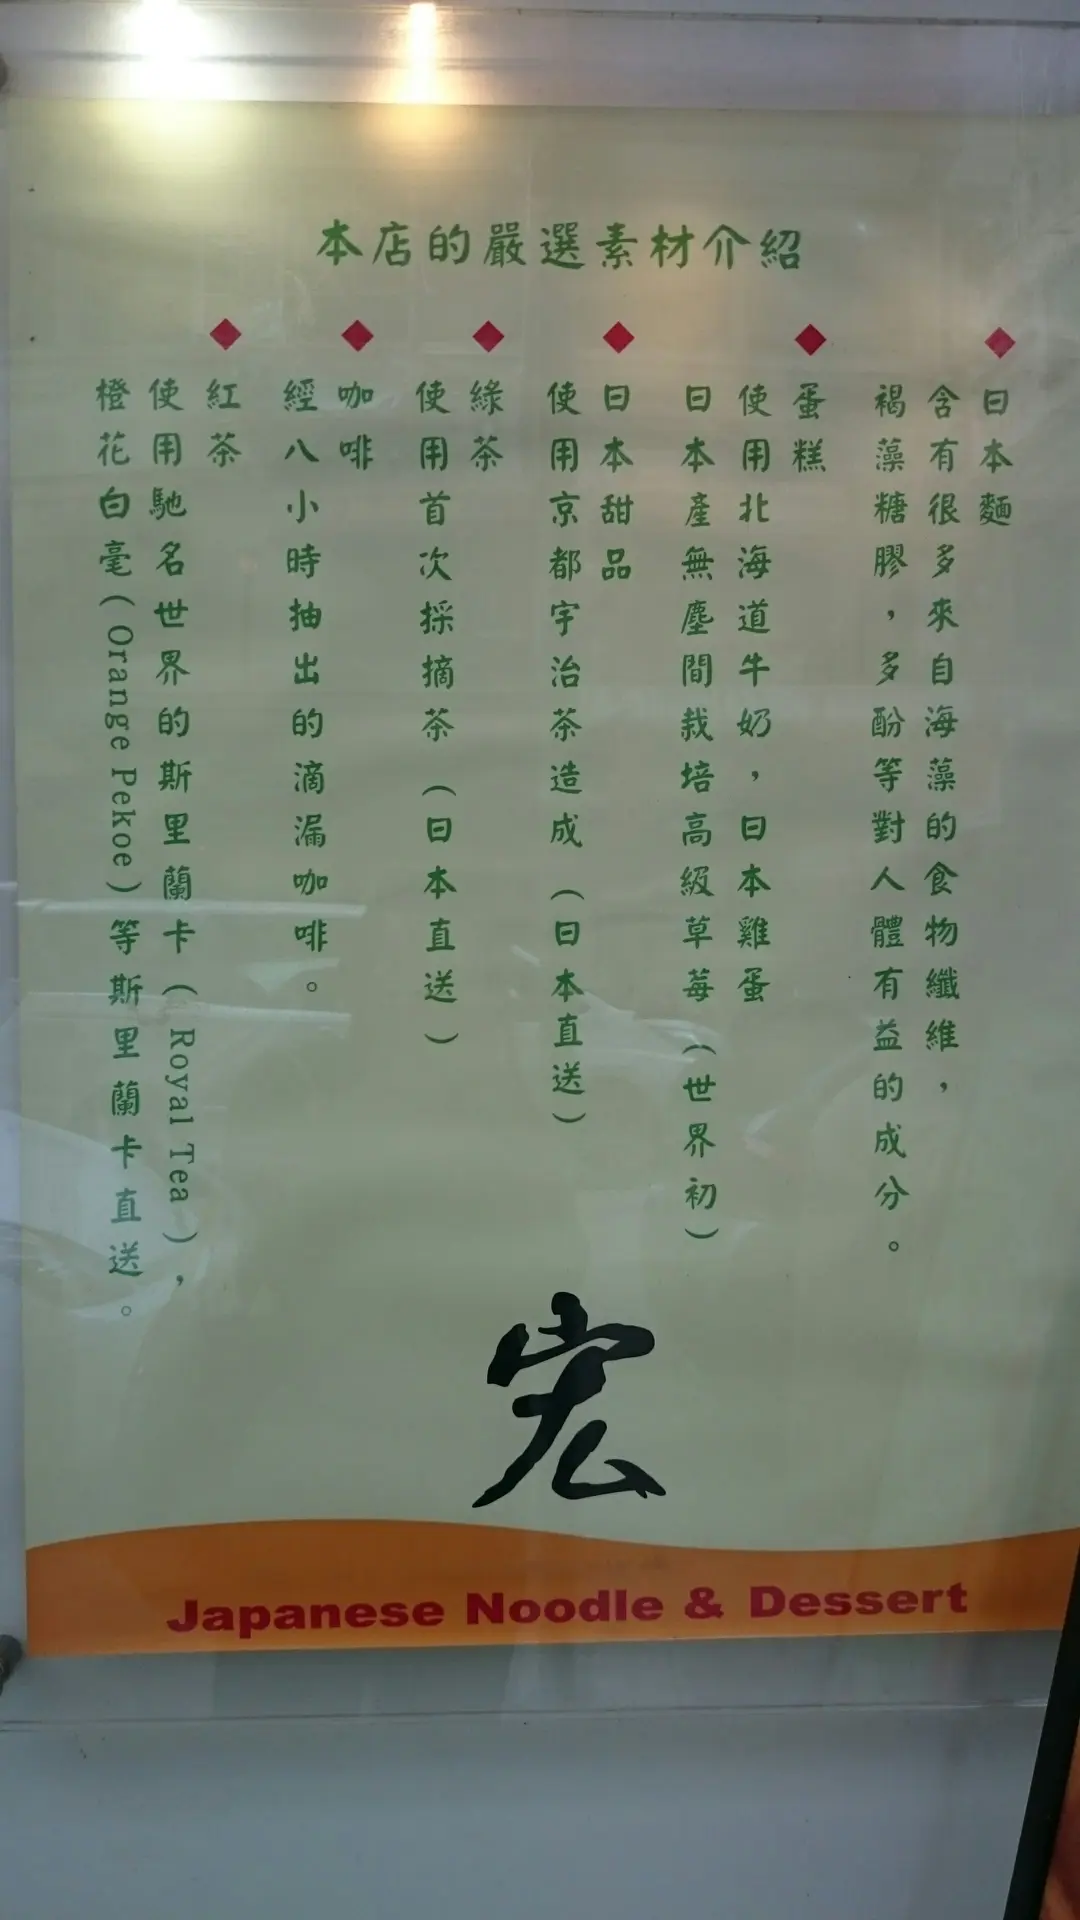 本店的嚴選素材介紹
日本麵
含有很多來自海藻的食物纖維，
褐藻糖膠，多酚等對人體有益的成分。
蛋糕
使用北海道牛奶，日本雞蛋
日本產無塵間栽培高級草莓（世界初）
日本甜品
使用京都宇治茶造成（日本直送）
綠茶
使用首次採摘茶（日本直送）
咖啡
經八小時抽出的滴漏咖啡。
紅茶
使用馳名世界的斯里蘭卡（Royal Tea），
橙花白毫（Orange Pekoe）等斯里蘭卡直送。
宏
Japanese Noodle & Dessert